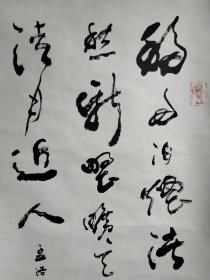 移舟泊煙渚
愁新野曠天
清月近人 孟浩